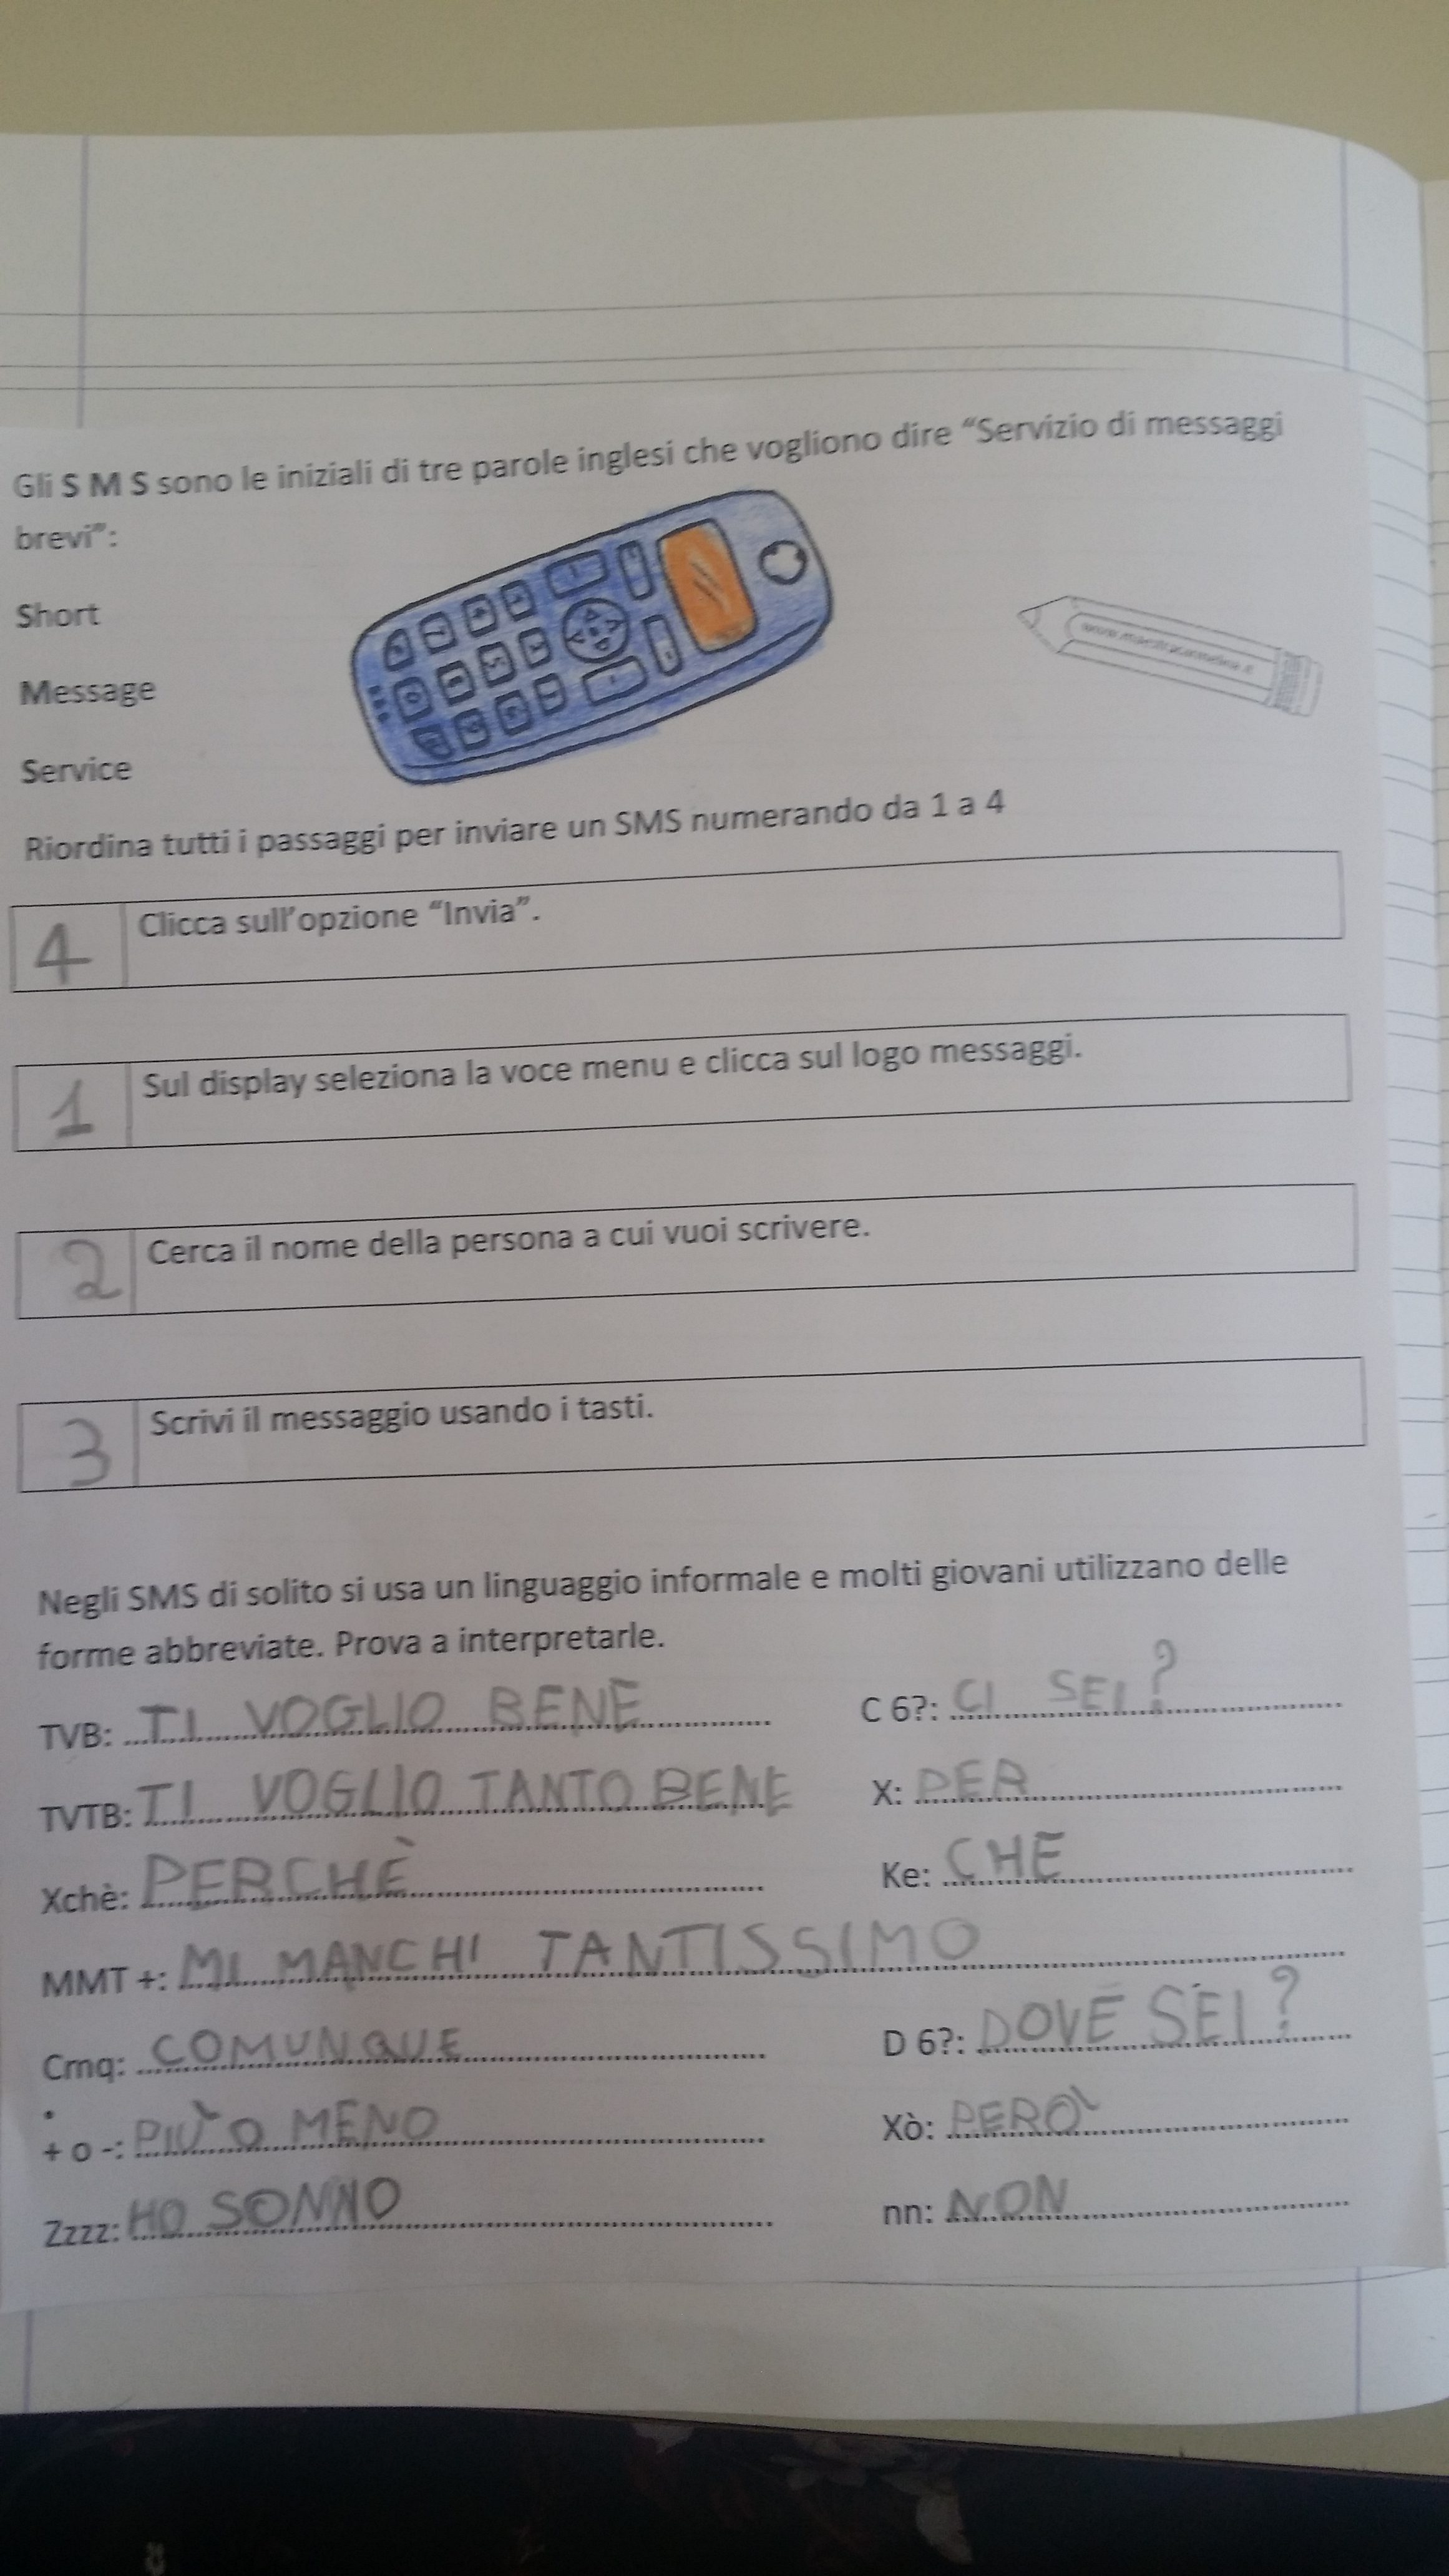 Gli S M S sono le iniziali di tre parole inglesi che vogliono dire “Servizio di messaggi
brevi”:
Short
Message
Service
Riordina tutti i passaggi per inviare un SMS numerando da 1 a 4
4 Clicca sull’opzione “Invia”.
1 Sul display seleziona la voce menu e clicca sul logo messaggi.
2 Cerca il nome della persona a cui vuoi scrivere.
3 Scrivi il messaggio usando i tasti.
Negli SMS di solito si usa un linguaggio informale e molti giovani utilizzano delle
forme abbreviate. Prova a interpretarle.
TVB: TI VOGLIO BENE C 6?: CI SEI?
TVTB: TI VOGLIO TANTO BENE X: PER
Xchè: PERCHÈ Ke: CHE
MMT +: MI MANCHI TANTISSIMO
Cmq: COMUNQUE D 6?: DOVE SEI?
+ o -: PIÙ O MENO Xò: PERÒ
Zzzz: HO SONNO nn: NON